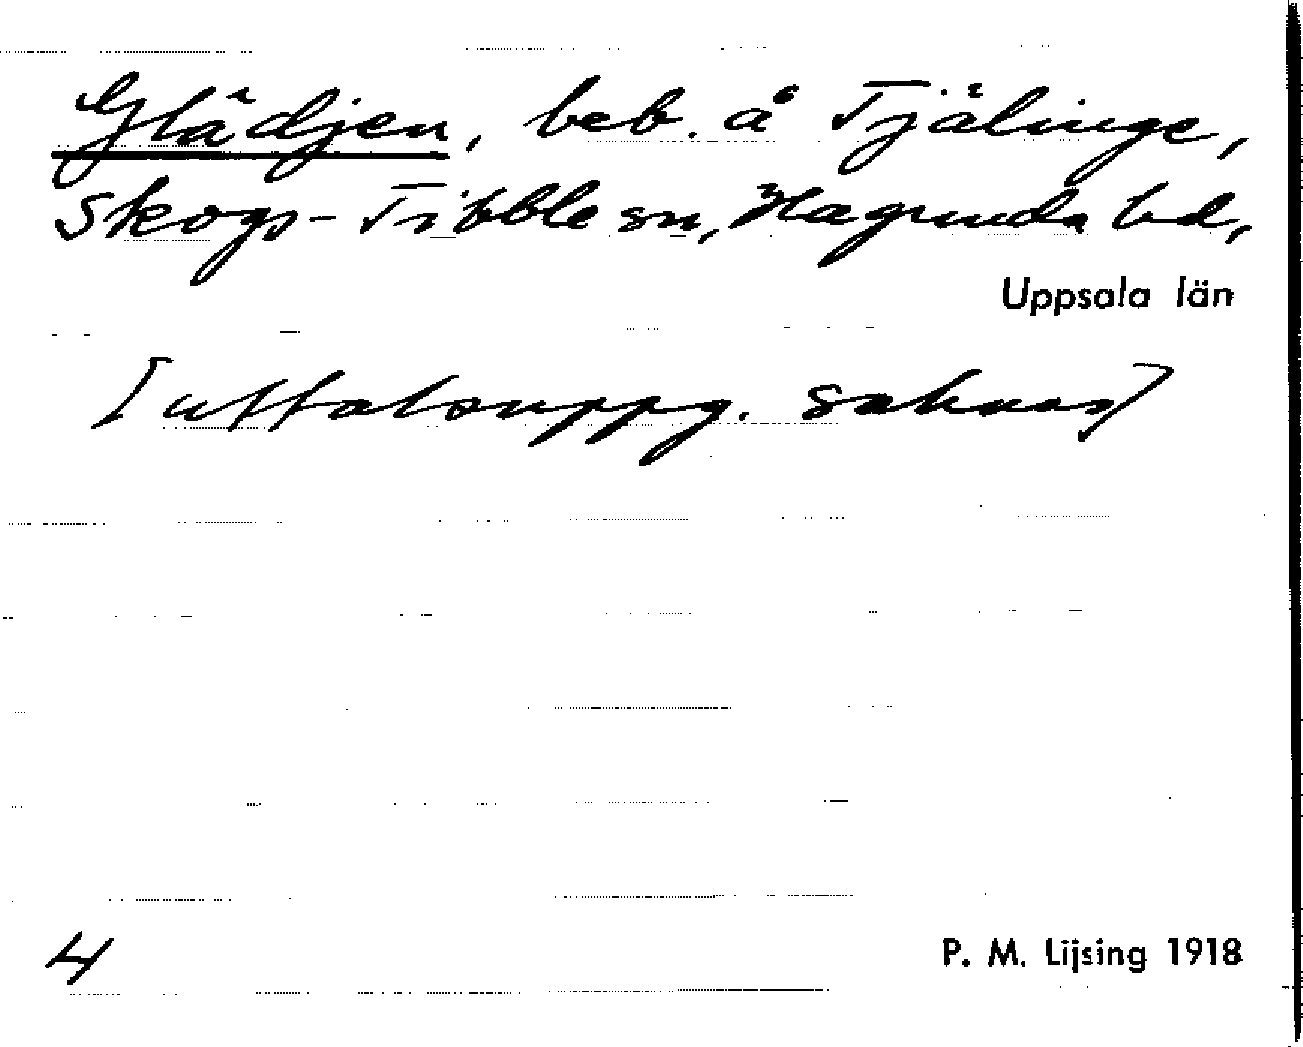 Glädjen, beb. å Tjälinge,
Skogs-Tibble sn, Hagunda hd,
Uppsala län
[uttalsuppg. saknas]
4
P. M. Lijsing 1918